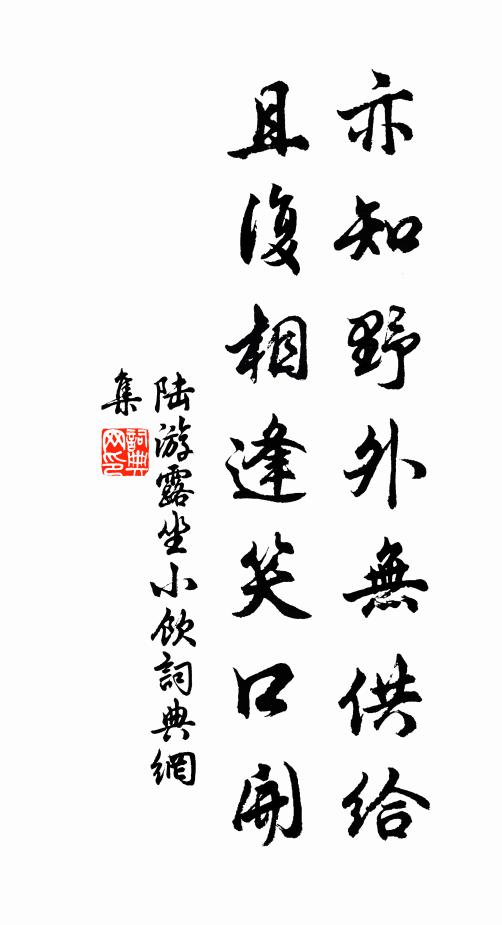 亦知野外無供給
且復相逢笑口開
陆游露坐小飲詞典網
集
詞典網印